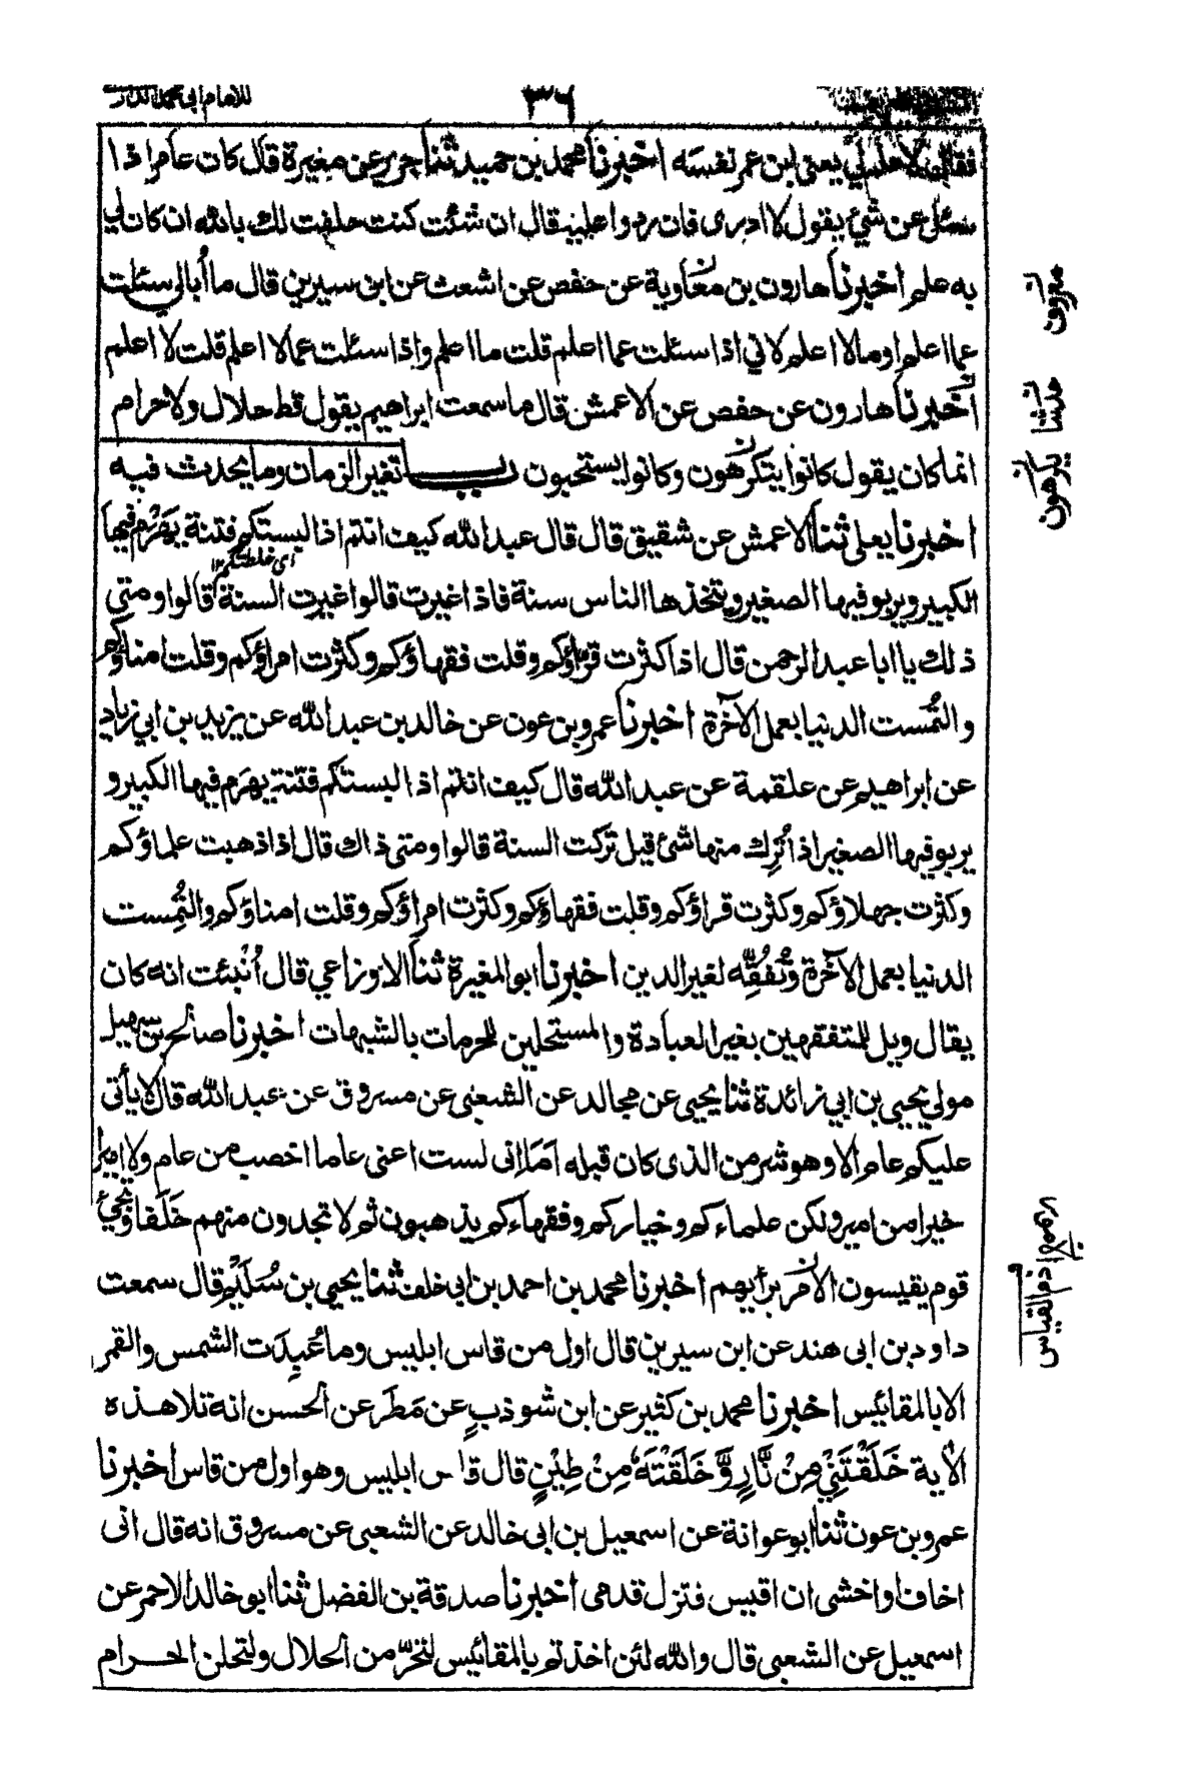 للامام ابي محمد الدار
٣٦
يعنى ابن عمر نفسه اخبرنا محمد بن حميد ثنا جرير عن مغيرة قال كان عامر اذا
سئل عن شئ يقول لا ادرى فان رد واعليه قال ان شئت كنت حلفت لك بالله ان كان لي
به علم اخبرنا هارون بن معاوية عن حفص عن اشعث عن ابن سيرين قال ما أبالي سئلت
عما اعلم او مالا اعلم لاني اذا سئلت عما اعلم قلت ما اعلم واذا سئلت عمالا اعلم قلت لا اعلم
اخبرنا هارون عن حفص عن الاعمش قال ما سمعت ابراهيم يقول قط حلال ولا حرام
انما كان يقول كانوا يتكرهون وكانوا يستحبون باب تغير الزمان وما يحدث فيه
اخبرنا يعلى ثنا الاعمش عن شقيق قال قال عبد الله كيف انتم اذا لبستكم فتنة يهرم فيها
اى غلطتكم ١٢
الكبير ويربو فيها الصغير ويتخذها الناس سنة فاذا غيرت قالوا غيرت السنة قالوا ومتى
ذلك يا ابا عبد الرحمن قال اذا كثرت قراؤكم وقلت فقهاؤكم وكثرت امراؤكم وقلت امناؤكم
والتُمست الدنيا بعمل الآخرة اخبرنا عمرو بن عون عن خالد بن عبد الله عن يزيد بن ابي زياد
عن ابراهيم عن علقمة عن عبد الله قال كيف انتم اذا لبستكم فتنة يهرَم فيها الكبير و
يربو فيها الصغير اذا تُرِك منها شئ قيل تركت السنة قالوا ومتى ذاك قال اذا ذهبت علماؤكم
وكثرت جهلاؤكم وكثرت قراؤكم وقلت فقهاؤكم وكثرت امراؤكم وقلت امناؤكم والتُمِست
الدنيا بعمل الآخرة وتُفُقِّه لغير الدين اخبرنا ابو المغيرة ثنا الاوزاعي قال أُنْبئت انه كان
يقال ويل للمتفقهين بغير العبادة والمستحلين للحرمات بالشبهات اخبرنا صالح بن سهيل
مولى يحيى بن ابي زائدة ثنا يحيى عن مجالد عن الشعبى عن مسروق عن عبد الله قال لا يأتى
عليكم عام الا وهو شر من الذى كان قبله اَمَا انى لست اعنى عاما اخصب من عام ولا اميرا
خيرا من امير ولكن علماءكم وخياركم وفقهاءكم يذهبون ثم لا تجدون منهم خَلَفا ويجئ
قوم يقيسون الامر برأيهم اخبرنا محمد بن احمد بن ابى خلف ثنا يحيى بن سُلَيْم قال سمعت
داود بن ابى هند عن ابن سيرين قال اول من قاس ابليس وما عُبِدَت الشمس والقمر
الا بالمقائيس اخبرنا محمد بن كثير عن ابن شوذبٍ عن مَطَر عن الحسن انه تلا هذه
الأية خَلَقْتَنِيْ مِنْ نَّارٍ وَّ خَلَقْتَهٗ مِنْ طِيْنٍ قال قاس ابليس وهو اول من قاس اخبرنا
عمرو بن عون ثنا ابو عوانة عن اسمعيل بن ابى خالد عن الشعبى عن مسروق انه قال انى
اخاف او اخشى ان اقيس فتزل قدمى اخبرنا صدقة بن الفضل ثنا ابو خالد الاحمر عن
اسمعيل عن الشعبى قال والله لئن اخذتم بالمقائيس لتحرّمن الحلال ولتحلن الحرام
معروف
حدثنا
يكرهون
ذم القياس